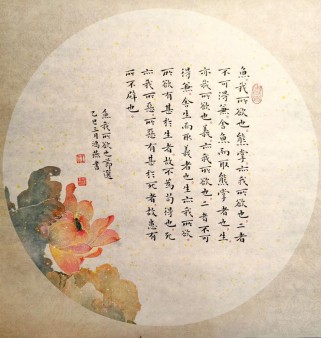 魚我所欲也熊掌亦我所欲也二者
不可得兼舍魚而取熊掌者也生
亦我所欲也義亦我所欲也二者不可
得兼舍生而取義者也生亦我所欲
所欲有甚於生者故不為苟得也死
亦我所惡所惡有甚於死者故患有
所不辟也
魚我所欲也節選
乙巳三月燕書